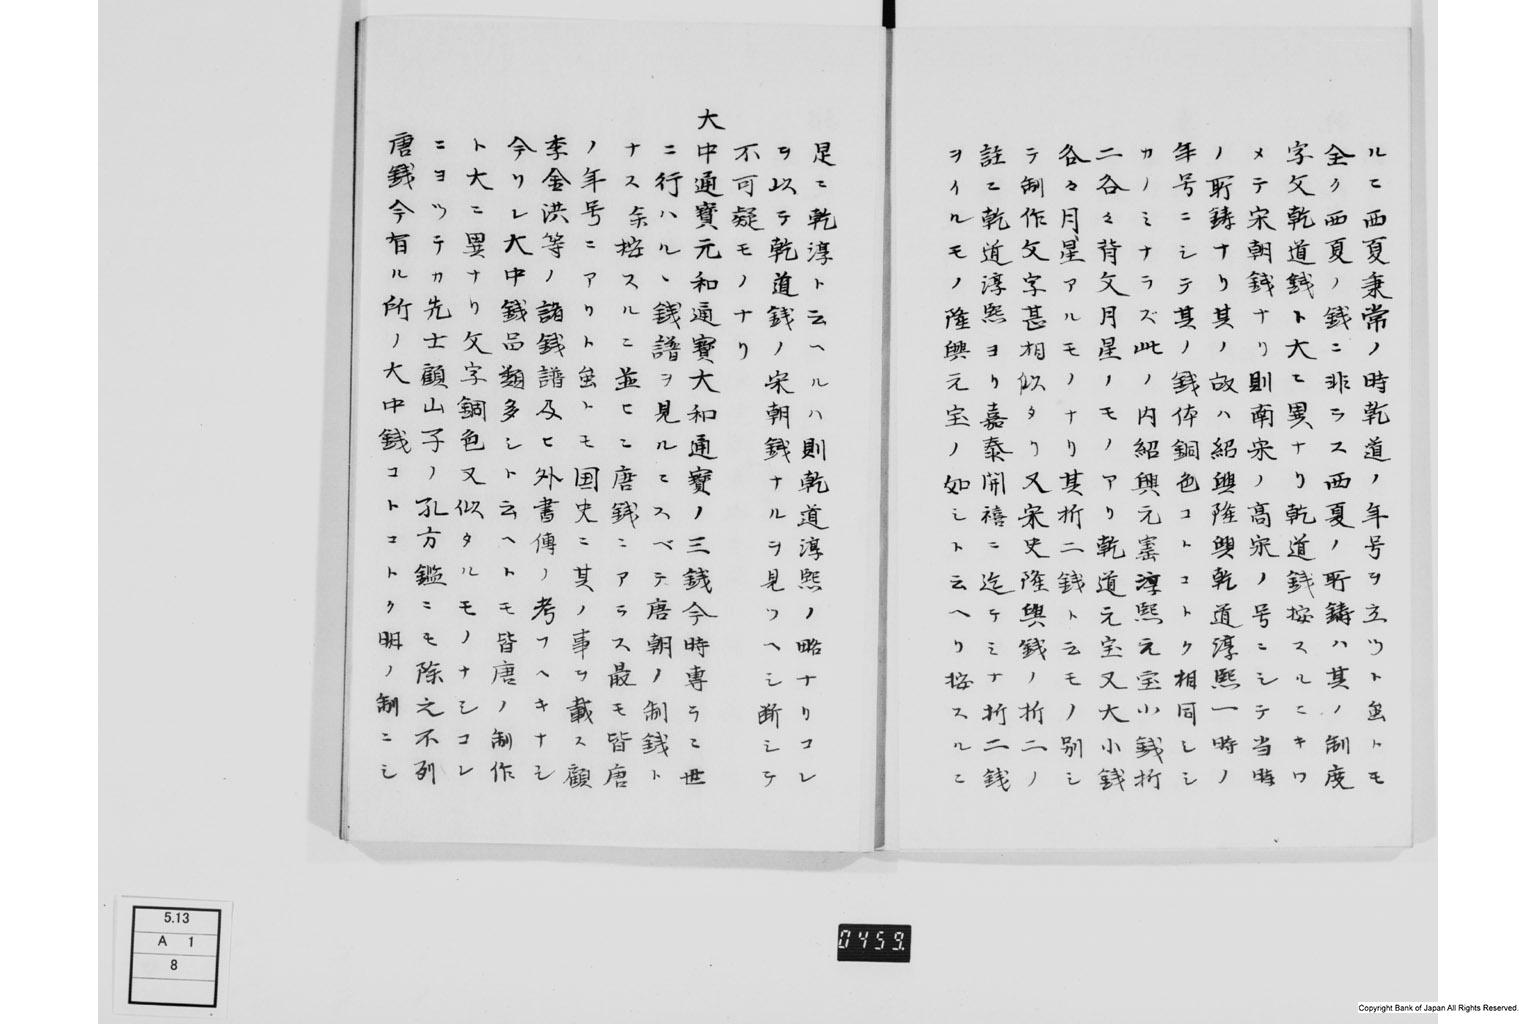 ルニ西夏秉常ノ時乾道ノ年号ヲ立ツト虽トモ
全ク西夏ノ銭ニ非ラス西夏ノ所鋳ハ其ノ制度
字文乾道銭ト大ニ異ナリ乾道銭按スルニキワ
メテ宋朝銭ナリ則南宋ノ高宗ノ号ニシテ当時
ノ所鋳ナリ其ノ故ハ紹興隆興乾道淳熙一時ノ
年号ニシテ其ノ銭体銅色コトコトク相同シシ
カノミナラズ此ノ内紹興元寳淳熙元宝小銭折
二各々背文月星ノモノアリ乾道元宝又大小銭
各々月星アルモノナリ其折二銭ト云モノ別シ
テ制作文字甚相似タリ又宋史隆興銭ノ折二ノ
註ニ乾道淳熙ヨリ嘉泰開禧ニ迄ケミナ折二銭
ヲイルモノ隆興元宝ノ如シト云ヘリ按スルニ
是ニ乾淳ト云ヘルハ則乾道淳熙ノ略ナリコレ
ヲ以テ乾道銭ノ宋朝銭ナルヲ見ツヘシ断シテ
不可疑モノナリ
大中通寳元和通寳大和通寳ノ三銭今時専ラニ世
ニ行ハル丶銭譜ヲ見ルニスベテ唐朝ノ制銭ト
ナス余按スルニ並ヒニ唐銭ニアラス最モ皆唐
ノ年号ニアリト虽トモ国史ニ其ノ事ヲ載ス顧
李金洪等ノ諸銭譜及ヒ外書傳ノ考フヘキナシ
今リレ大中銭品類多シト云ヘトモ皆唐ノ制作
ト大ニ異ナリ文字銅色又似タルモノナシコレ
ニヨツテカ先士顧山子ノ孔方鑑ニモ除之不列
唐銭今有ル所ノ大中銭コトコトク明ノ制ニシ
5.13
A 1
8
0459.
Copyright Bank of Japan All Rights Reserved.